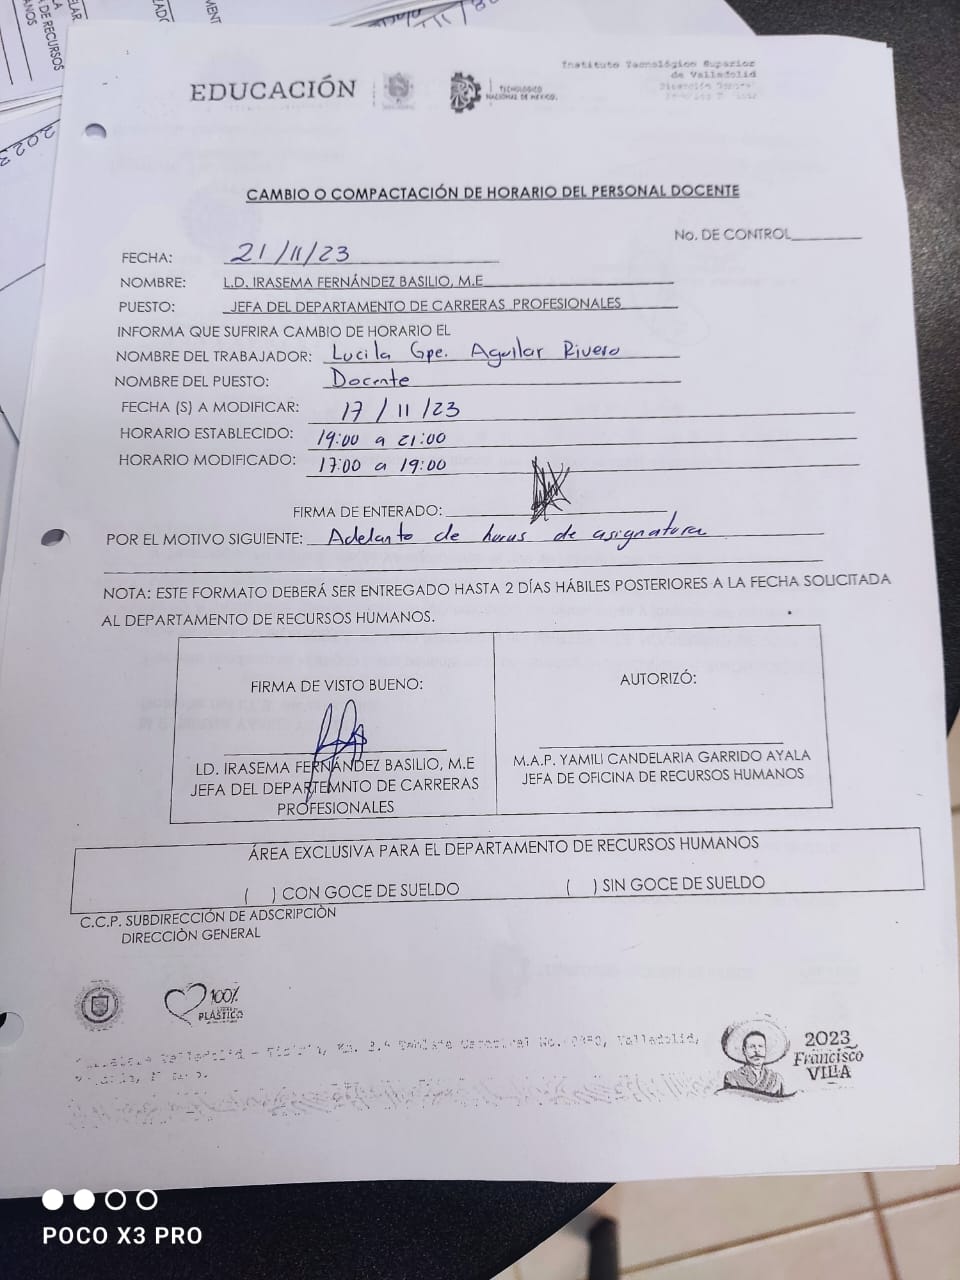 EDUCACIÓN
TECNOLÓGICO
NACIONAL DE MÉXICO
Instituto Tecnológico Superior
de Valladolid
CAMBIO O COMPACTACIÓN DE HORARIO DEL PERSONAL DOCENTE
No. DE CONTROL
FECHA: 21/11/23
NOMBRE: L.D. IRASEMA FERNÁNDEZ BASILIO, M.E
PUESTO: JEFA DEL DEPARTAMENTO DE CARRERAS PROFESIONALES
INFORMA QUE SUFRIRA CAMBIO DE HORARIO EL
NOMBRE DEL TRABAJADOR: Lucila Gpe. Aguilar Rivero
NOMBRE DEL PUESTO: Docente
FECHA (S) A MODIFICAR: 17/11/23
HORARIO ESTABLECIDO: 19:00 a 21:00
HORARIO MODIFICADO: 17:00 a 19:00
FIRMA DE ENTERADO:
POR EL MOTIVO SIGUIENTE: Adelanto de horas de asignatura
NOTA: ESTE FORMATO DEBERÁ SER ENTREGADO HASTA 2 DÍAS HÁBILES POSTERIORES A LA FECHA SOLICITADA
AL DEPARTAMENTO DE RECURSOS HUMANOS.
FIRMA DE VISTO BUENO:
LD. IRASEMA FERNÁNDEZ BASILIO, M.E
JEFA DEL DEPARTEMNTO DE CARRERAS
PROFESIONALES
AUTORIZÓ:
M.A.P. YAMILI CANDELARIA GARRIDO AYALA
JEFA DE OFICINA DE RECURSOS HUMANOS
ÁREA EXCLUSIVA PARA EL DEPARTAMENTO DE RECURSOS HUMANOS
( ) CON GOCE DE SUELDO ( ) SIN GOCE DE SUELDO
C.C.P. SUBDIRECCIÓN DE ADSCRIPCIÒN
DIRECCIÒN GENERAL
100%
PLÁSTICO
Valladolid - Km. Valladolid,
2023
Francisco
VILLA
POCO X3 PRO